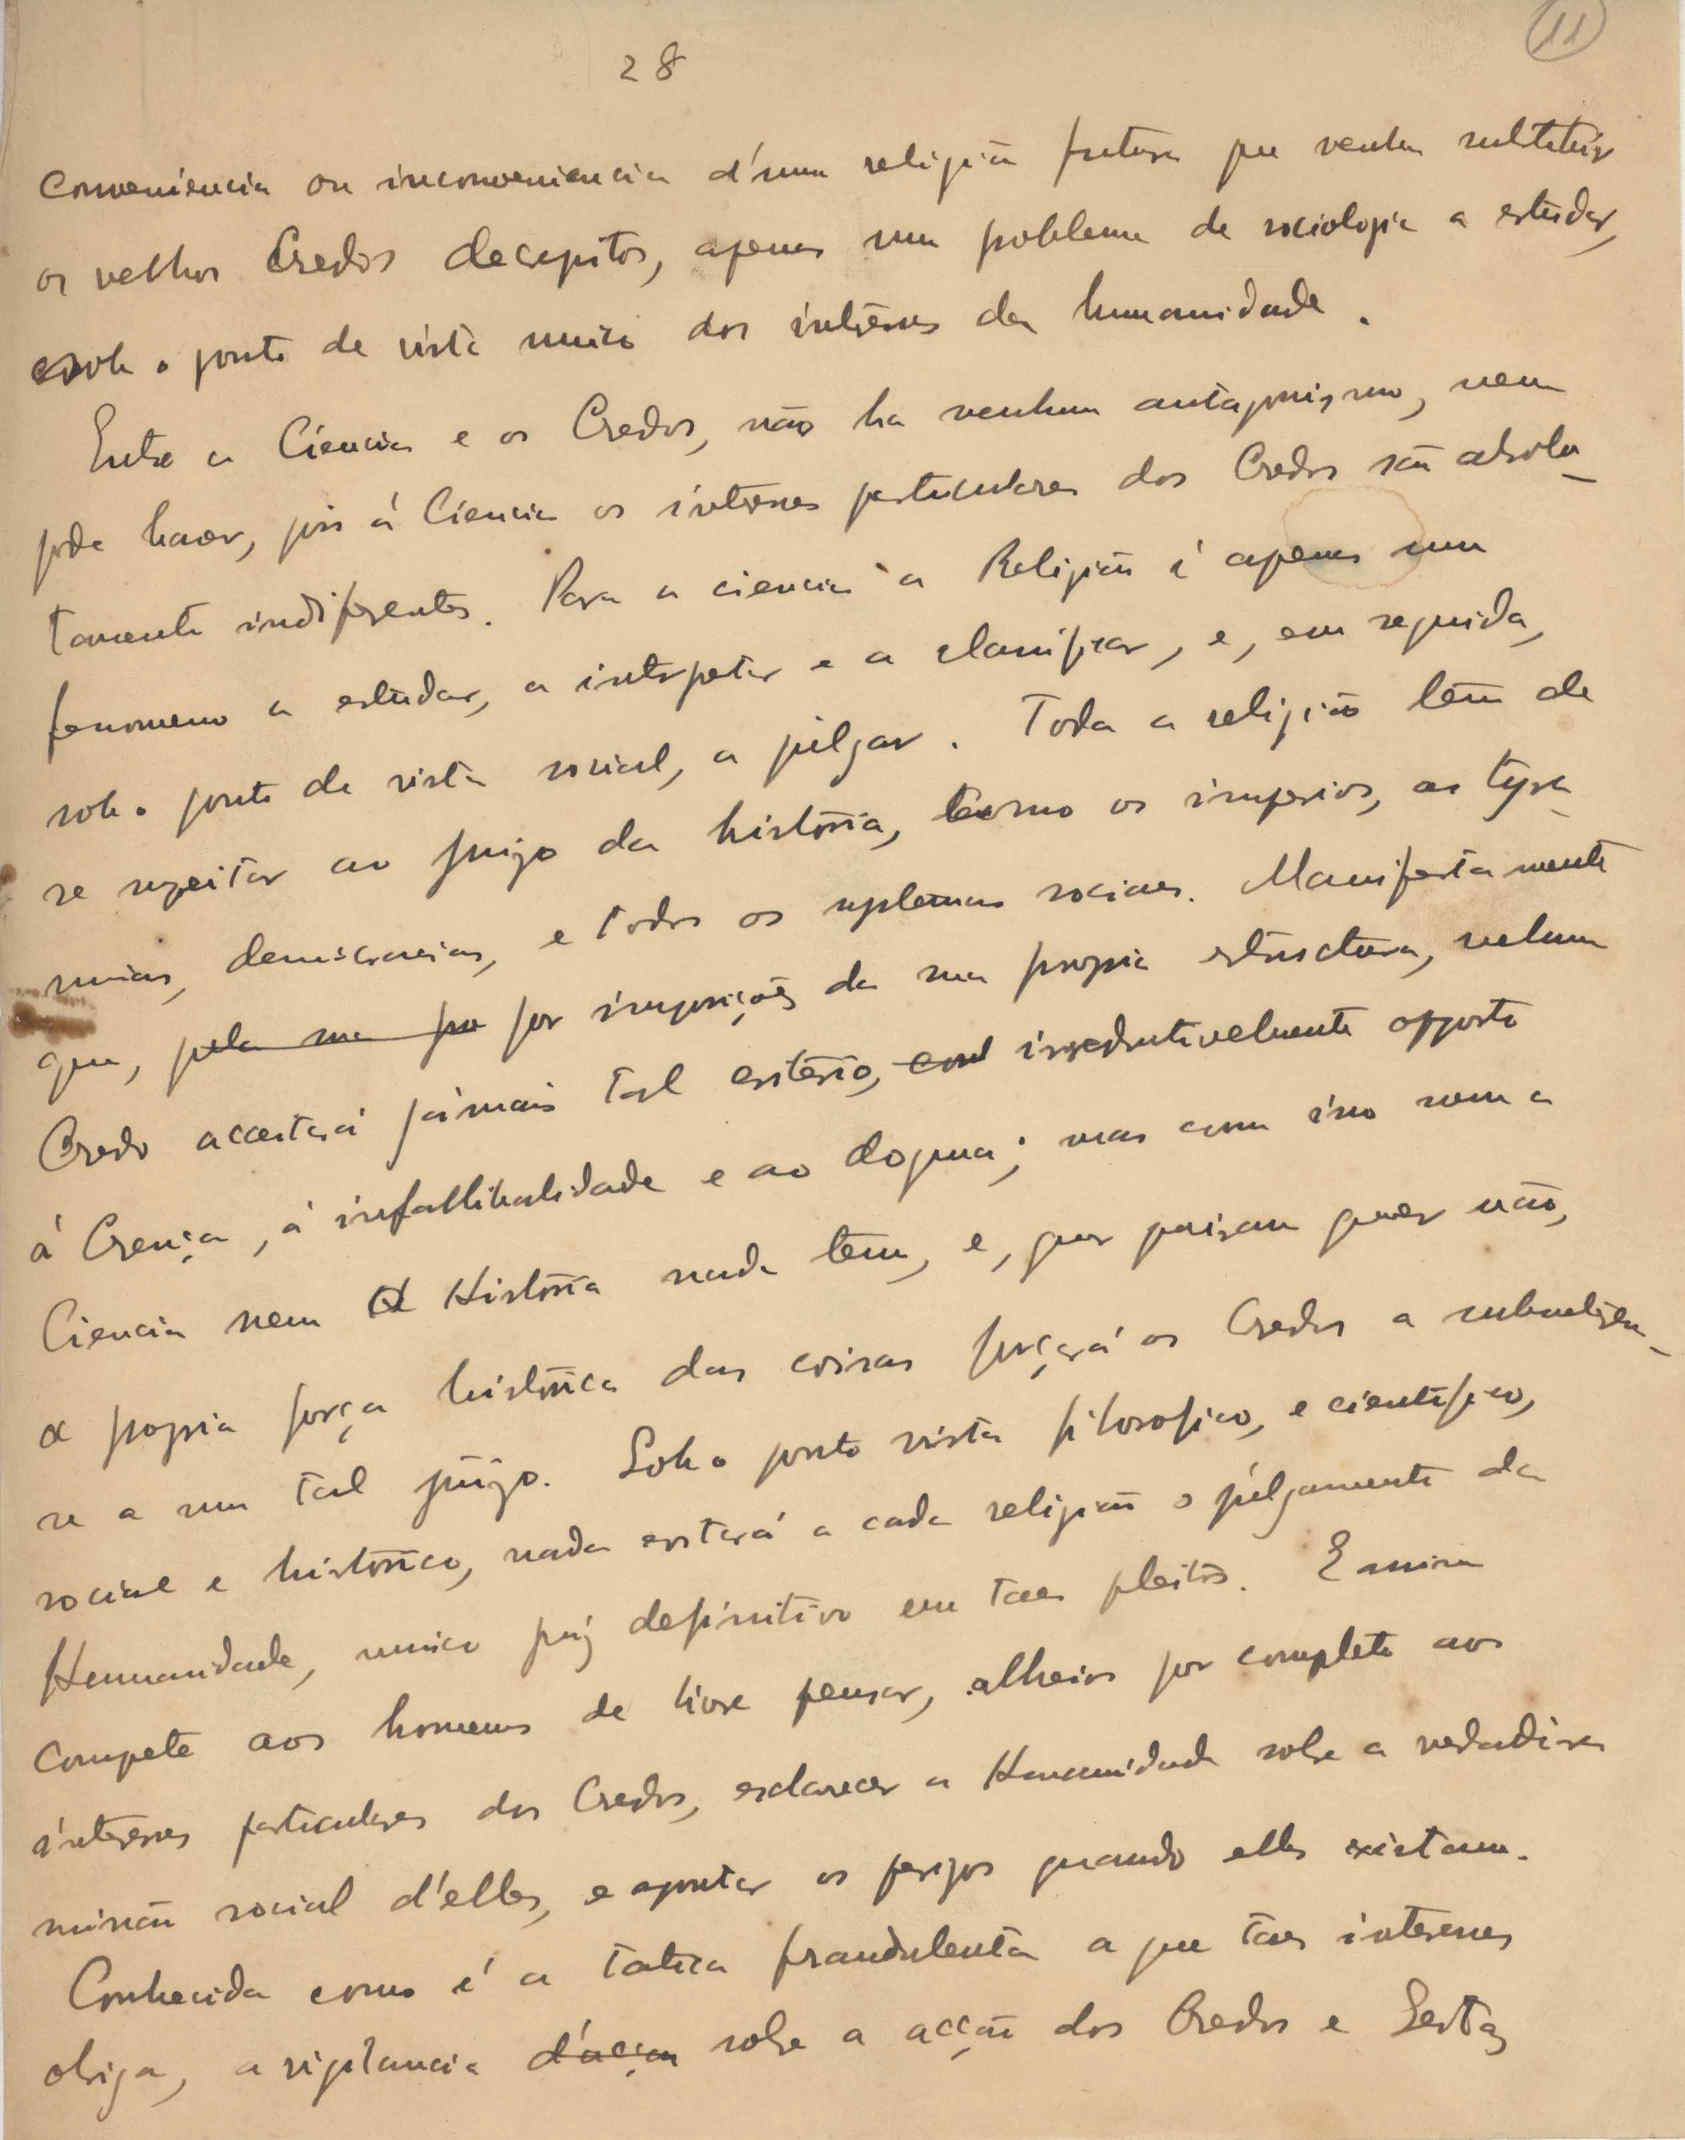 11
28
conveniencia ou inconveniencia d'uma religião futura que venha substituir
os velhos Credos decrepitos, apenas um problema de sociologia a estudar,
sob o ponto de vista unico dos interesses da humanidade.
Entre a Ciencia e os Credos, não ha nenhum antagonismo, nem
pode haver, pois á Ciencia os interesses particulares dos Credos são absolu-
tamente indiferentes. Para a ciencia a Religião é apenas um
fenomeno a estudar, a interpetar e a classificar, e, em seguida,
sob o ponto de vista social, a julgar. Toda a religião têm de
se sugeitar ao juizo da história, como os imperios, as tyra-
nias, democracias, e todos os systemas sociaes. Manifestamente
que, pela sua por imposições da sua propria estructura, nehum
Credo acceitará jámais tal criterio, irredutivelmente opposto
á Crença, á infallibalidade e ao dogma; mas com isso nem a
Ciencia nem a História nada têm, e, quer queiram quer não,
a propria força histórica das coisas forçará os Credos a submeterem-
se a um tal juizo. Sob o ponto vista filosofico, e cientifico,
social e histórico, nada evitará a cada religião o julgamento da
Humanidade, unico juiz definitivo em taes pleitos. E assim
compete aos homens de livre pensar, alheios por completo aos
interesses particulares dos Credos, esclarecer a Humanidade sobre a verdadeira
missão social d'elles, e apontar os perigos quando elles existam.
Conhecida como é a tatica fraudulenta a que taes interesses
obriga, a vigilancia d'acção sobre a acção dos Credos e Seitas